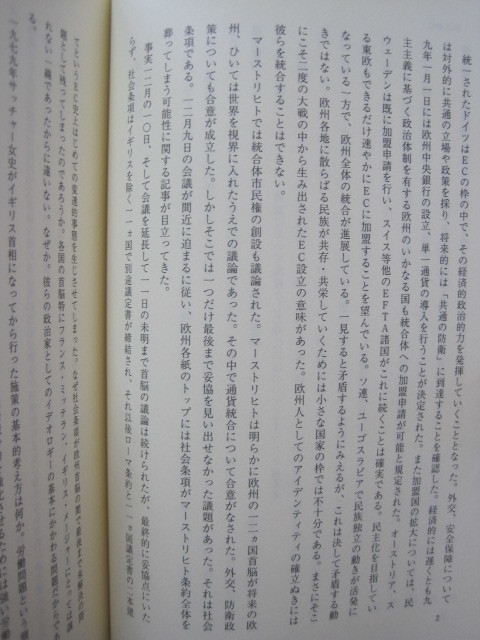 統一されたドイツはECの枠の中で、その経済的政治的力を発揮していくこととなった。外交、安全保障について
は対外的に共通の立場や政策を採り、将来的には「共通の防衛」に到達することを確認した。経済的には遅くとも九
九年一月一日には欧州中央銀行の設立、単一通貨の導入を行うことが決定された。また加盟国の拡大については、民
主主義に基づく政治体制を有する欧州のいかなる国も統合体への加盟申請が可能と規定された。オーストリア、ス
ウェーデンは既に加盟申請を行い、スイス等他のEFTA諸国がこれに続くことは確実である。民主化を目指してい
る東欧もできるだけ速やかにECに加盟することを望んでいる。ソ連、ユーゴスラビアで民族独立の動きが活発に
なっている一方で、欧州全体の統合が進展している。一見すると矛盾するようにみえるが、これは決して矛盾する動
きではない。欧州各地に散らばる民族が共存・共栄していくためには小さな国家の枠では不十分である。まさにそこ
にこそ二度の大戦の中から生み出されたEC設立の意味があった。欧州人としてのアイデンティティの確立ぬきには
彼らを統合することはできない。
マーストリヒトでは統合体市民権の創設も議論された。マーストリヒトは明らかに欧州の一二ヵ国首脳が将来の欧
州、ひいては世界を視界に入れたうえでの議論であった。その中で通貨統合について合意がなされた。外交、防衛政
策についても合意が成立した。しかしそこでは一つだけ最後まで妥協を見い出せなかった議題があった。それは社会
条項である。一二月九日の会議が間近に迫まるに従い、欧州各紙のトップには社会条項がマーストリヒト条約全体を
葬ってしまう可能性に関する記事が目立ってきた。
事実一二月の一〇日、そして会議を延長して一一日の未明まで首脳の議論は続けられたが、最終的に妥協点にいた
らず、社会条項はイギリスを除く一一ヵ国で別途議定書が締結され、それ以後ローマ条約と一一ヵ国議定書の二本建
てというEC史上はじめての変則的事態を生じさせてしまった。なぜ社会条項が欧州首脳の間で最後まで未解決の問
題として残ってしまったのであろうか。各国の首脳特にフランス・ミッテラン、イギリス・メージャーにとっては譲
れない一線であったからに違いない。なぜか。彼らの政治家としてのイデオロギーの基本にかかわる問題だからであ
る。
一九七九年サッチャー女史がイギリス首相になってから行った施策の基本的考え方は何か。労働問題という
2